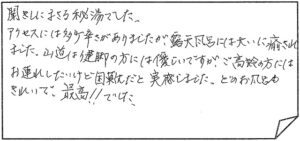 聞きしにまさる秘湯でした。
アクセスには多少辛さがありましたが、露天風呂には大いに癒され
ました。山道は健脚の方には優しいですが、ご高齢の方には
お連れしたいけど困難だと実感しました。どのお風呂も
きれいで、最高!!でした。